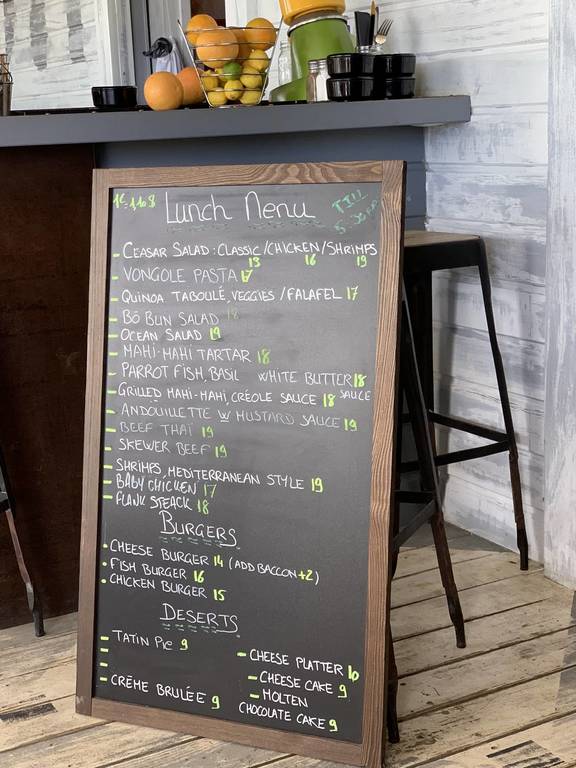 1€=1,10$ Lunch Menu TILL
5:30 PM
- CEASAR SALAD : CLASSIC / CHICKEN / SHRIMPS
13 16 19
- VONGOLE PASTA 17
- QUINOA TABOULÉ, VEGGIES / FALAFEL 17
- BÒ BUN SALAD 18
- OCEAN SALAD 19
- MAHI-MAHI TARTAR 18
- PARROT FISH, BASIL WHITE BUTTER 18
SAUCE
- GRILLED MAHI-MAHI, CRÉOLE SAUCE 18
- ANDOUILLETTE W MUSTARD SAUCE 19
- BEEF THAÏ 19
- SKEWER BEEF 19
- SHRIMPS, MEDITERRANEAN STYLE 19
- BABY CHICKEN 17
- FLANK STEACK 18
BURGERS
• CHEESE BURGER 14 (ADD BACCON +2)
• FISH BURGER 16
• CHICKEN BURGER 15
DESERTS
- TATIN PIE 9
- CHEESE PLATTER 10
- CHEESE CAKE 9
- MOLTEN
CHOCOLATE CAKE 9
- CRÈME BRULÉE 9